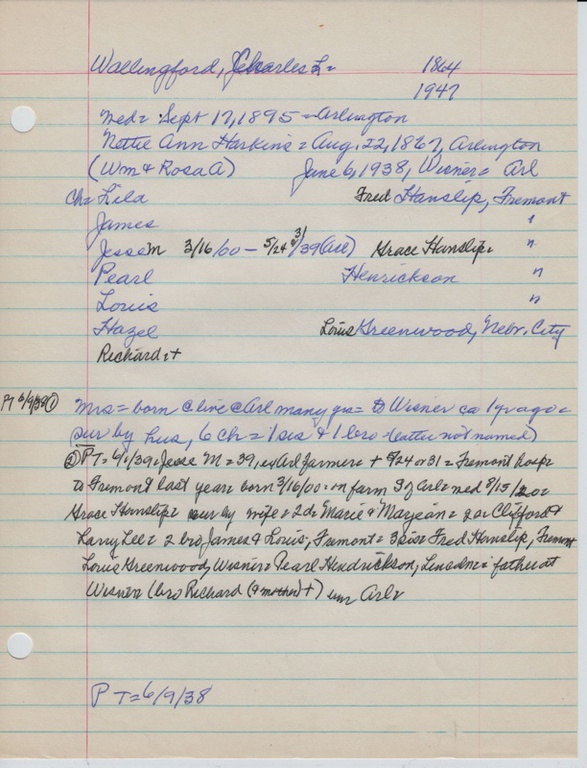 Wallingford, Charles L= 1864
1947
med= Sept 17, 1895 = Arlington
Nettie Ann Harkins = Aug. 22, 1867, Arlington
(Wm & Rosa A) June 6, 1938, Wisner = Arl
Ch= Lila Fred Hanslip, Fremont
James "
Jesse M 3/16/00 - 5/24 or 31/39 (Arl) Grace Hanslip= "
Pearl Henrickson "
Louis "
Hazel Louis Greenwood, Nebr. City
Richard=+
PT 6/9/38 ① Mrs = born & live @ Arl many yrs = to Wisner ca 1 yr ago =
sur by hus, 6 ch = 1 sis & 1 bro (latter not named)
② PT = 6/1/39 = Jesse M = 39, ex Arl farmer = + 5/24 or 31 = Fremont Hosp=
to Fremont last year born 3/16/00 = on farm S of Arl = med 8/15/20 =
Grace Hanslip = sur by wife = 2 da Marie & Maryean = 2 s = Clifford &
Larry Lee = 2 bro James & Louis, Fremont = 3 sis = Fred Hanslip, Fremont
Louis Greenwood, Wisner = Pearl Hendrickson, Lincoln = father at
Wisner (bro Richard (& mother) +) Arl=
PT = 6/9/38